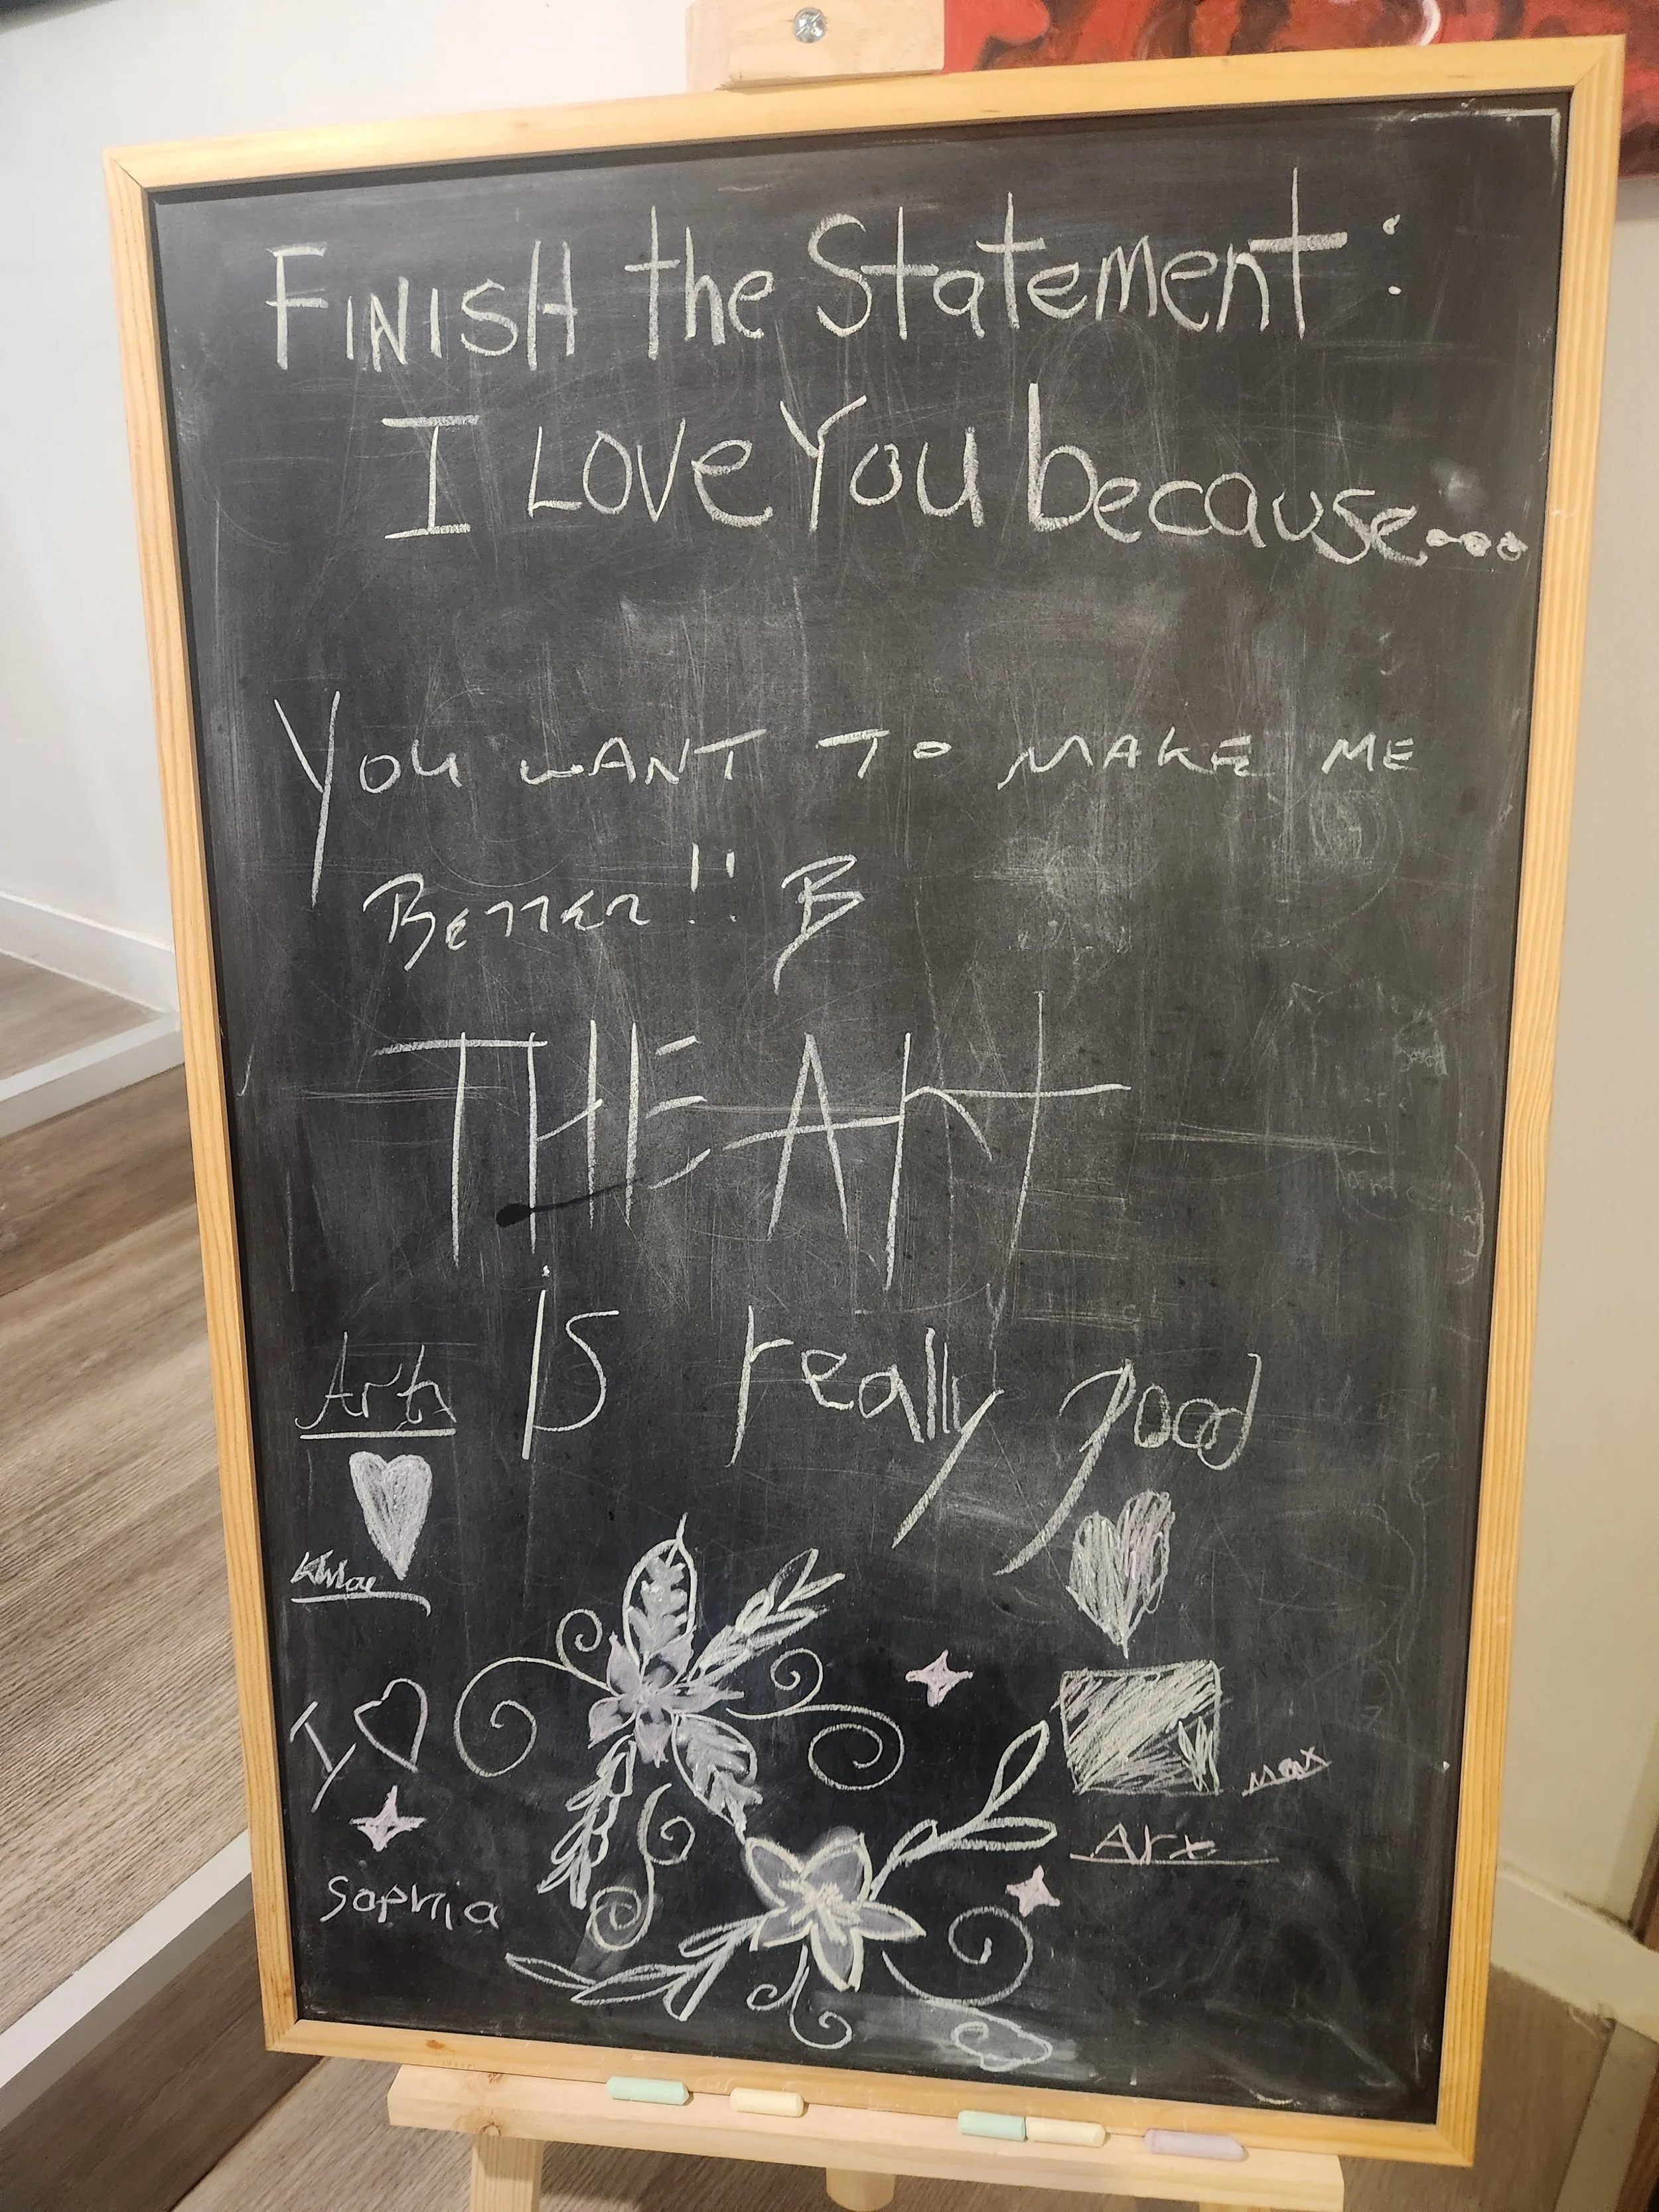 FINISH the Statement:
I Love You because...
You WANT TO MAKE ME
BETTER!! B
THE ART
is really good
Art
I
Sophia
max
Art